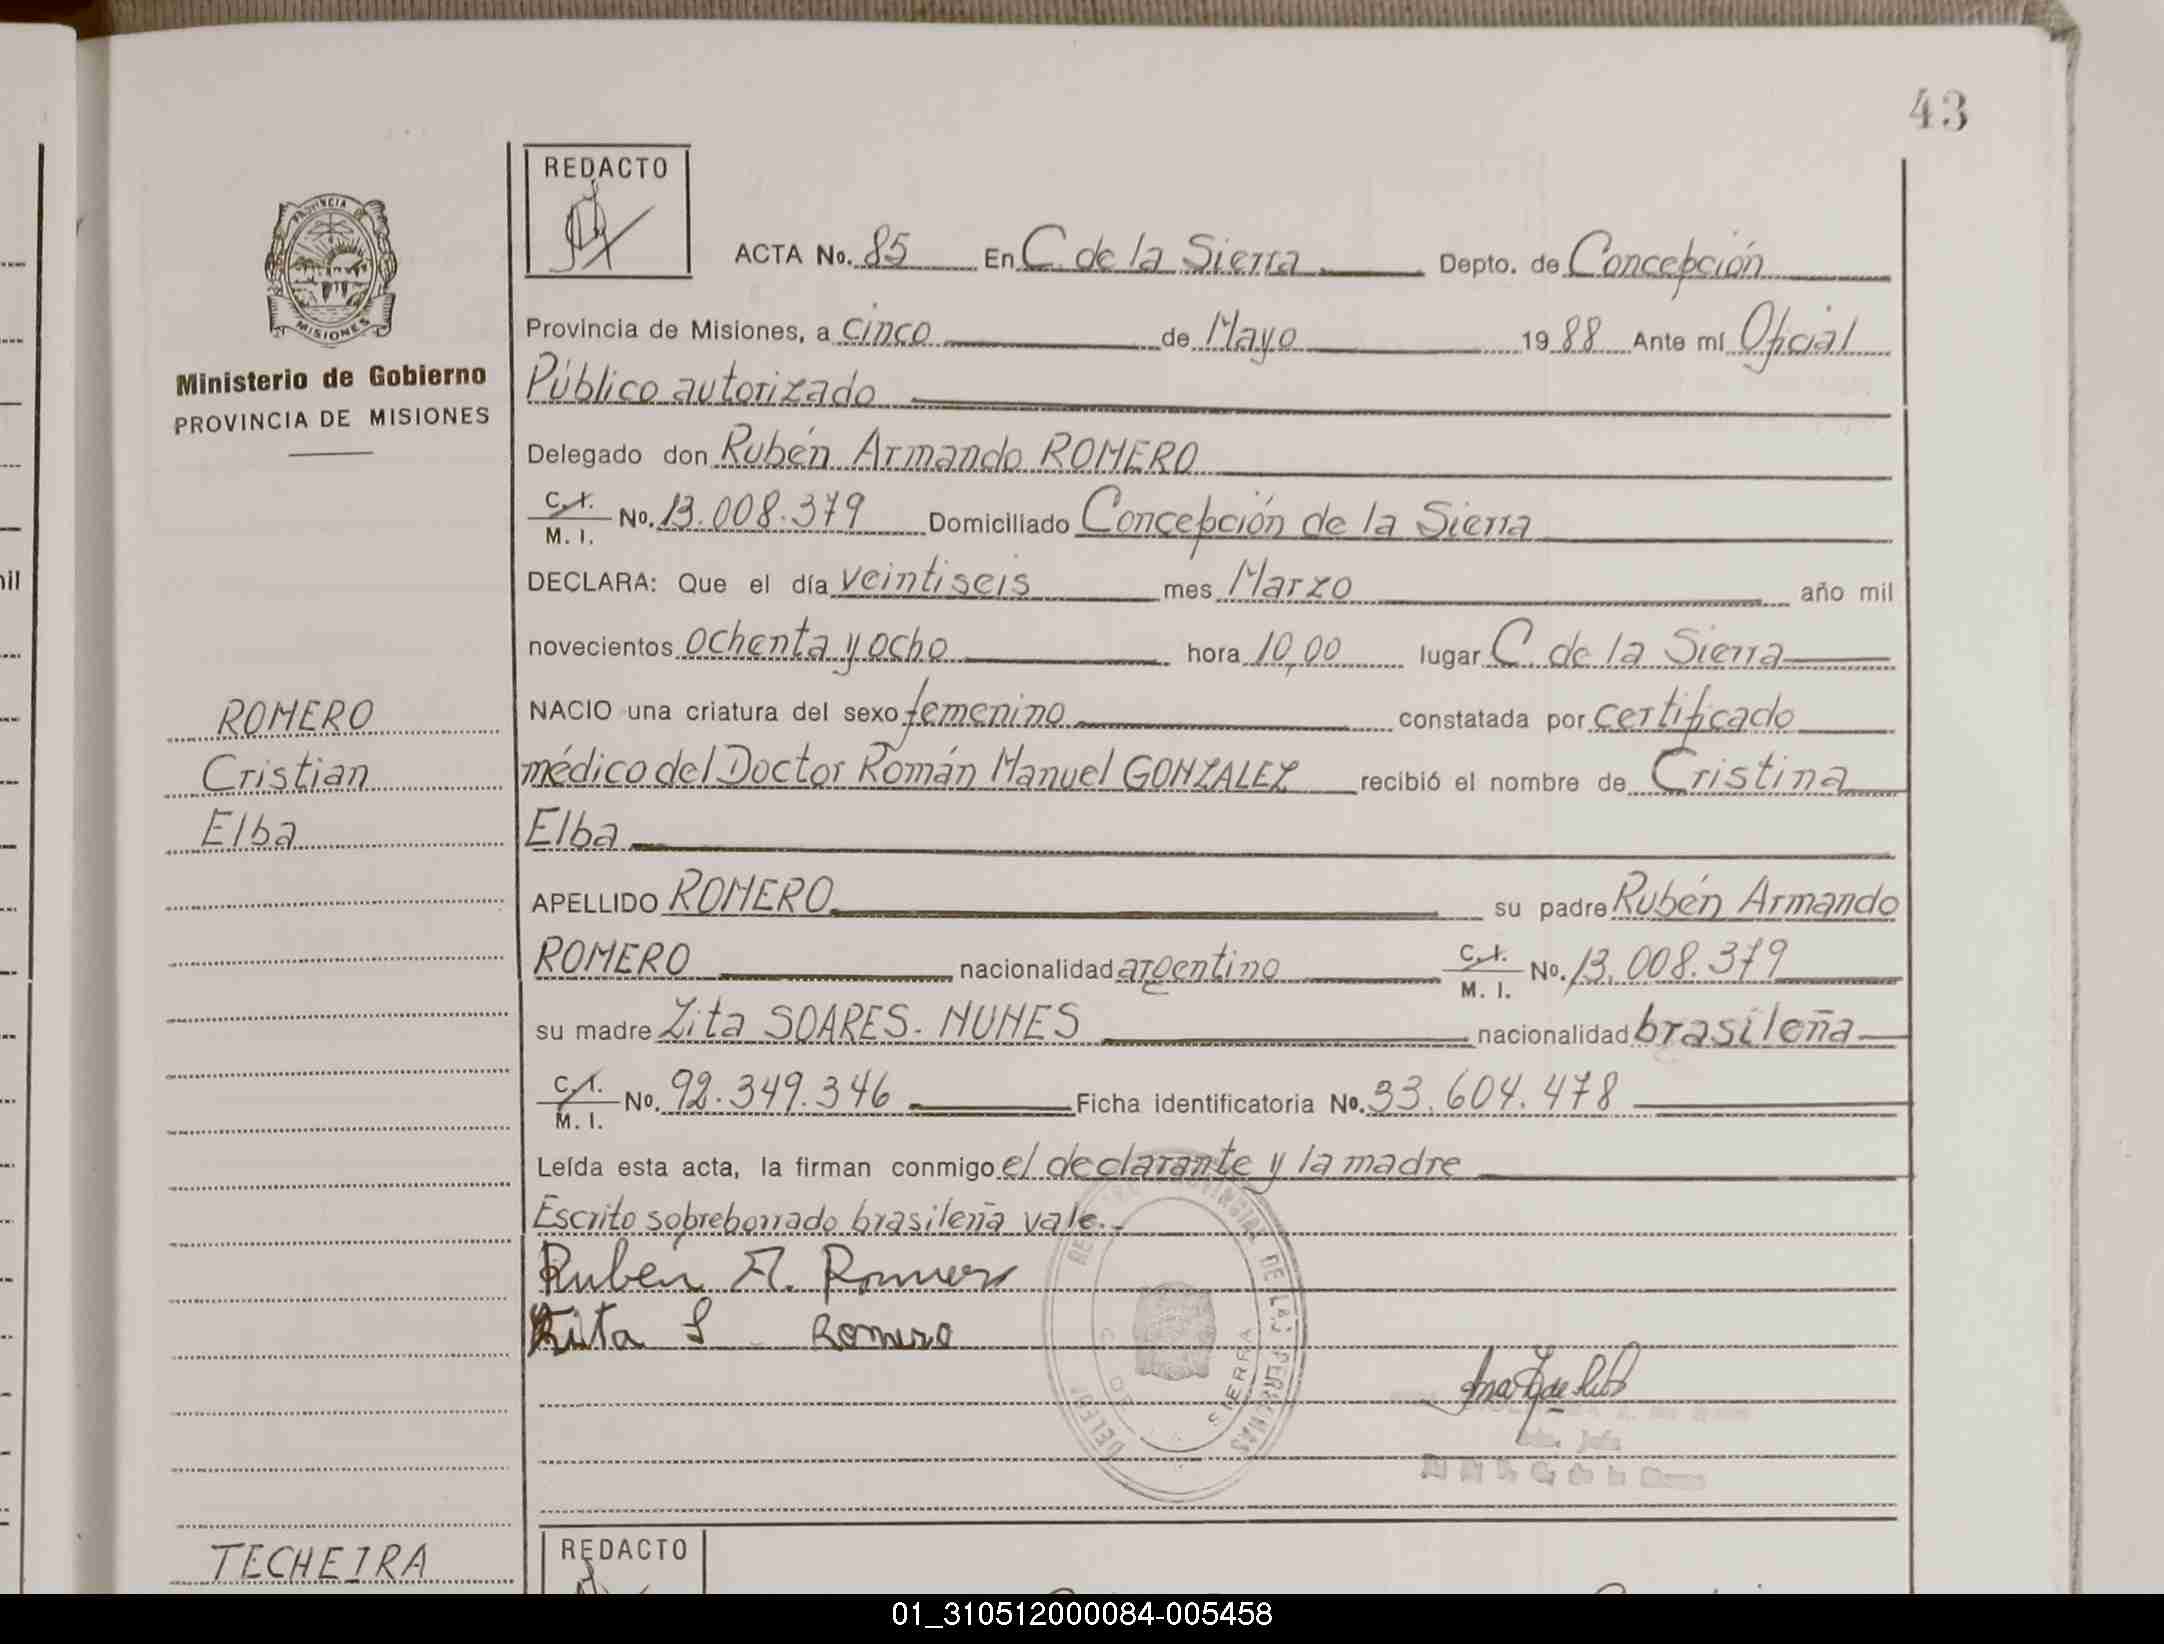 43
REDACTO
PROVINCIA DE
MISIONES
Ministerio de Gobierno
PROVINCIA DE MISIONES
ACTA No. 85 En C. de la Sierra Depto. de Concepción
Provincia de Misiones, a cinco de Mayo 1988 Ante mí Oficial
Público autorizado
Delegado don Rubén Armando ROMERO
C.I. M. I. No. 13.008.379 Domiciliado Concepción de la Sierra
DECLARA: Que el día veintiseis mes Marzo año mil
novecientos ochenta y ocho hora 10,00 lugar C. de la Sierra
NACIO una criatura del sexo femenino constatada por certificado
médico del Doctor Román Manuel GONZALEZ recibió el nombre de Cristina
Elba
APELLIDO ROMERO su padre Rubén Armando
ROMERO nacionalidad argentino C.I. M. I. No. 13.008.379
su madre Zita SOARES. NUNES nacionalidad brasileña
C.I. M. I. No. 92.349.346 Ficha identificatoria No. 33.604.478
Leída esta acta, la firman conmigo el declarante y la madre
Escrito sobreborrado brasileña vale.-
Rubén A. Romero
Zita S Romero
ROMERO
Cristian
Elba
REGISTRO PROVINCIAL DE LAS PERSONAS
SIERRA
TECHEIRA
REDACTO
nil
01_310512000084-005458